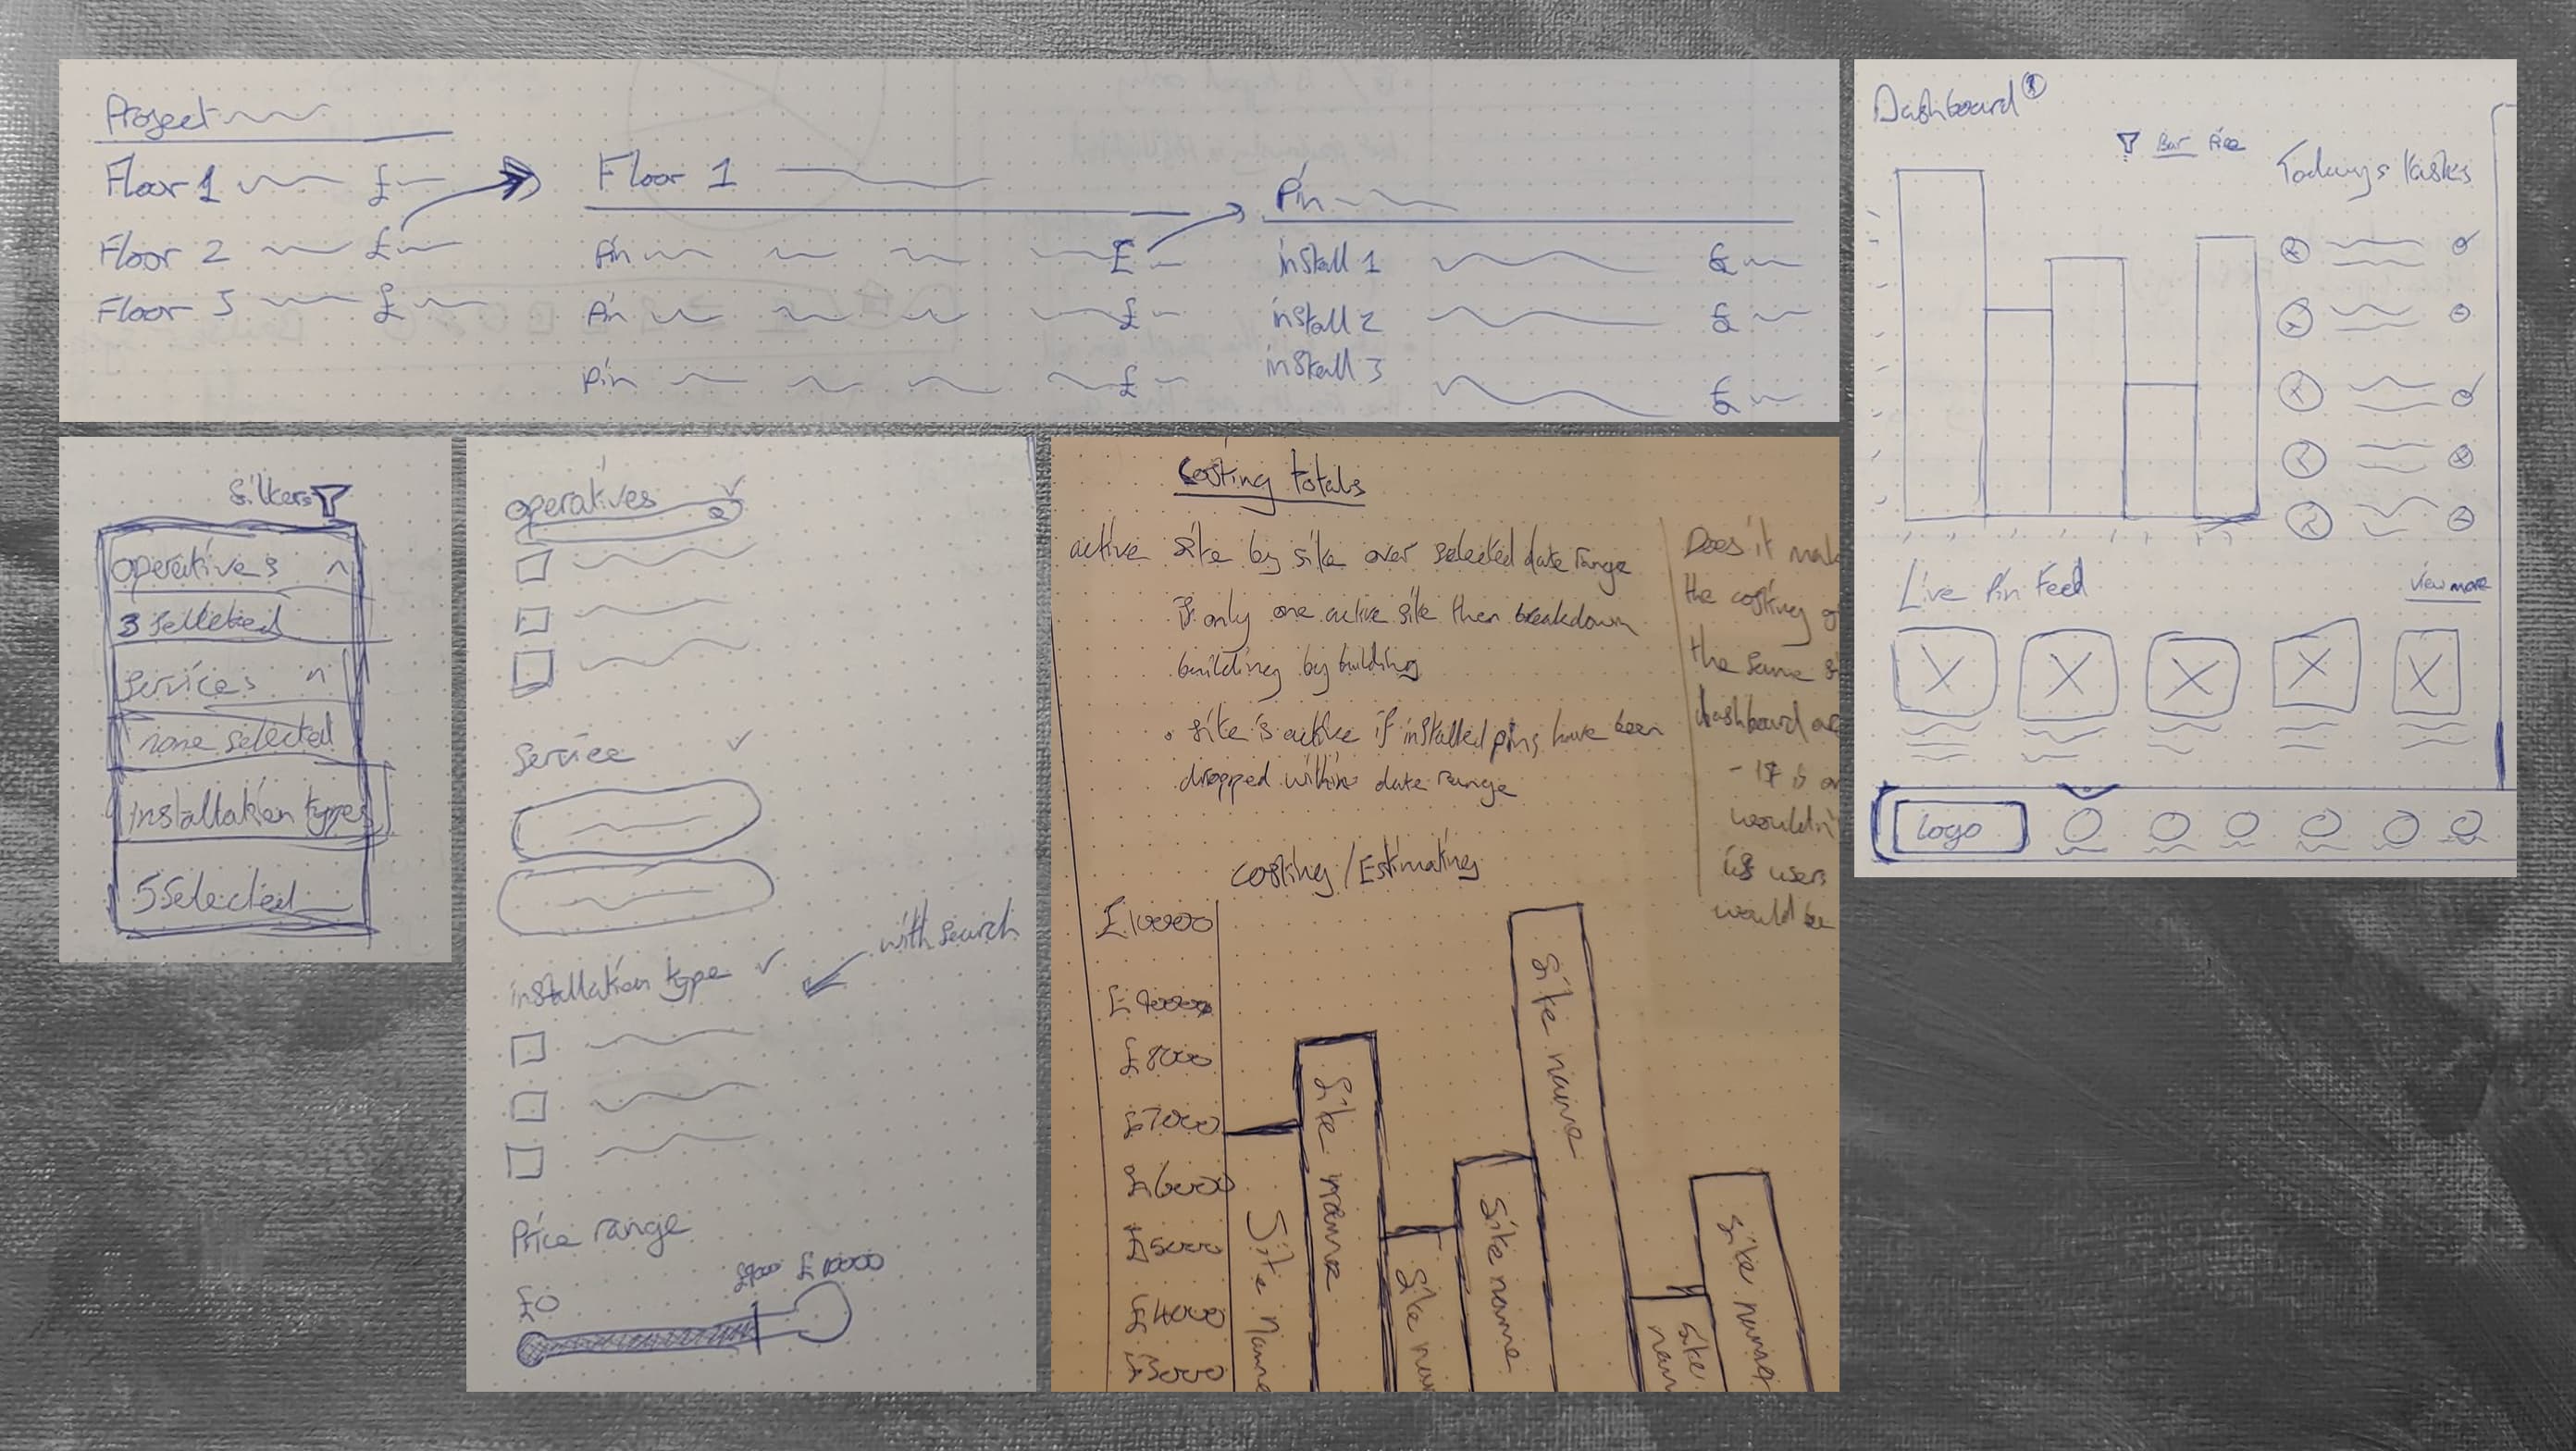 Project
Floor 1 £
Floor 2 £
Floor 3 £
Floor 1
Pin £
Pin £
Pin £
Pin
install 1 £
install 2 £
install 3
£
Dashboard
Bar Pie
Todays tasks
Live Pin Feed
View more
logo
filters
operatives
3 selected
services
none selected
installation types
5 selected
operatives
Service
installation type
with search
Price range
£0
£10000
Costing totals
active site by site over selected date range
If only one active site then breakdown
building by building
• site is active if installed pins have been
dropped within date range
Does it
the costing
the same
dashboard
- If
wouldn'
users
would be
Costing / Estimating
£10000
£8000
£7000
£6000
£5000
£4000
£3000
Site name
Site name
Site
Site name
Site name
Site
Site name